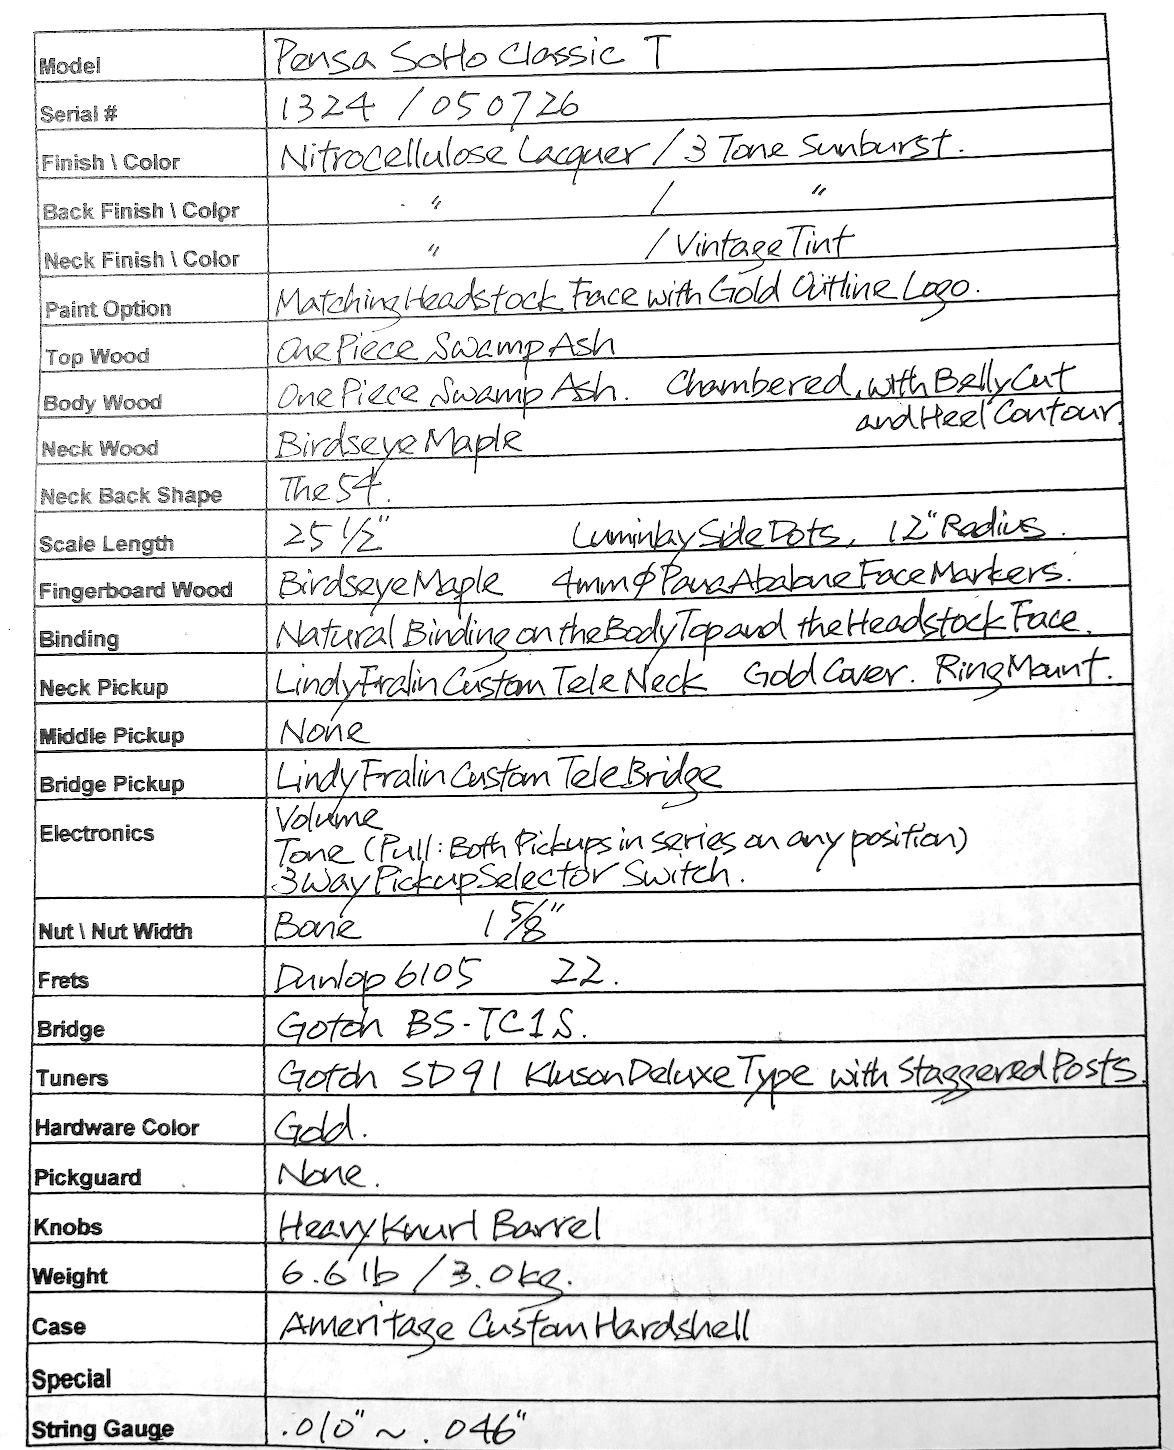 Model Pensa SoHo Classic T
Serial # 1324 / 050726
Finish \ Color Nitrocellulose Lacquer / 3 Tone Sunburst.
Back Finish \ Color 〃 / 〃
Neck Finish \ Color 〃 / Vintage Tint
Paint Option Matching Headstock Face with Gold Outline Logo.
Top Wood One Piece Swamp Ash
Body Wood One Piece Swamp Ash. Chambered, with Belly Cut
and Heel Contour.
Neck Wood Birdseye Maple
Neck Back Shape The 54.
Scale Length 25 1/2" Luminlay Side Dots, 12" Radius.
Fingerboard Wood Birdseye Maple 4mmϕ Paua Abalone Face Markers.
Binding Natural Binding on the Body Top and the Headstock Face.
Neck Pickup Lindy Fralin Custom Tele Neck Gold Cover. Ring Mount.
Middle Pickup None
Bridge Pickup Lindy Fralin Custom Tele Bridge
Electronics Volume
Tone (Pull: Both Pickups in series on any position)
3 Way Pickup Selector Switch.
Nut \ Nut Width Bone 1 5/8"
Frets Dunlop 6105 22.
Bridge Gotoh BS-TC1S.
Tuners Gotoh SD91 Kluson Deluxe Type with Staggered Posts
Hardware Color Gold.
Pickguard None.
Knobs Heavy Knurl Barrel
Weight 6.6 lb / 3.0 kg.
Case Ameritage Custom Hardshell
Special
String Gauge .010" ~ .046"